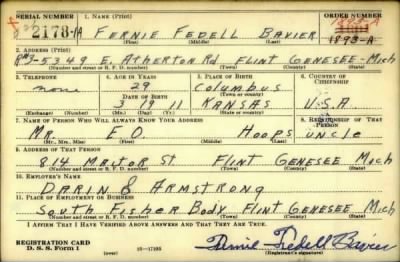 SERIAL NUMBER 1. NAME (Print) ORDER NUMBER
2178 FERNIE FEDELL BAVIER 1893-A
(First) (Middle) (Last)
2. ADDRESS (Print)
R#3-5349 E. Atherton Rd FLINT GENESEE-Mich
(Number and street or R. F. D. number) (Town) (County) (State)
3. TELEPHONE 4. AGE IN YEARS 5. PLACE OF BIRTH 6. COUNTRY OF CITIZENSHIP
none 29 Columbus
DATE OF BIRTH (Town or county)
3 19 11 KANSAS U.S.A
(Exchange) (Number) (Mo.) (Day) (Yr.) (State or country)
7. NAME OF PERSON WHO WILL ALWAYS KNOW YOUR ADDRESS 8. RELATIONSHIP OF THAT PERSON
MR. E O. HOOPS uncle
(Mr., Mrs., Miss) (First) (Middle) (Last)
9. ADDRESS OF THAT PERSON
814 ST FLINT GENESEE Mich
(Number and street or R. F. D. number) (Town) (County) (State)
10. EMPLOYER'S NAME
DARIN & ARMSTRONG
11. PLACE OF EMPLOYMENT OR BUSINESS
South Fisher Body FLINT GENESEE Mich
(Number and street or R. F. D. number) (Town) (County) (State)
I AFFIRM THAT I HAVE VERIFIED ABOVE ANSWERS AND THAT THEY ARE TRUE.
REGISTRATION CARD
D. S. S. Form 1 (over) 16-17105 Fernie Fedell Bavier
(Registrant's signature)